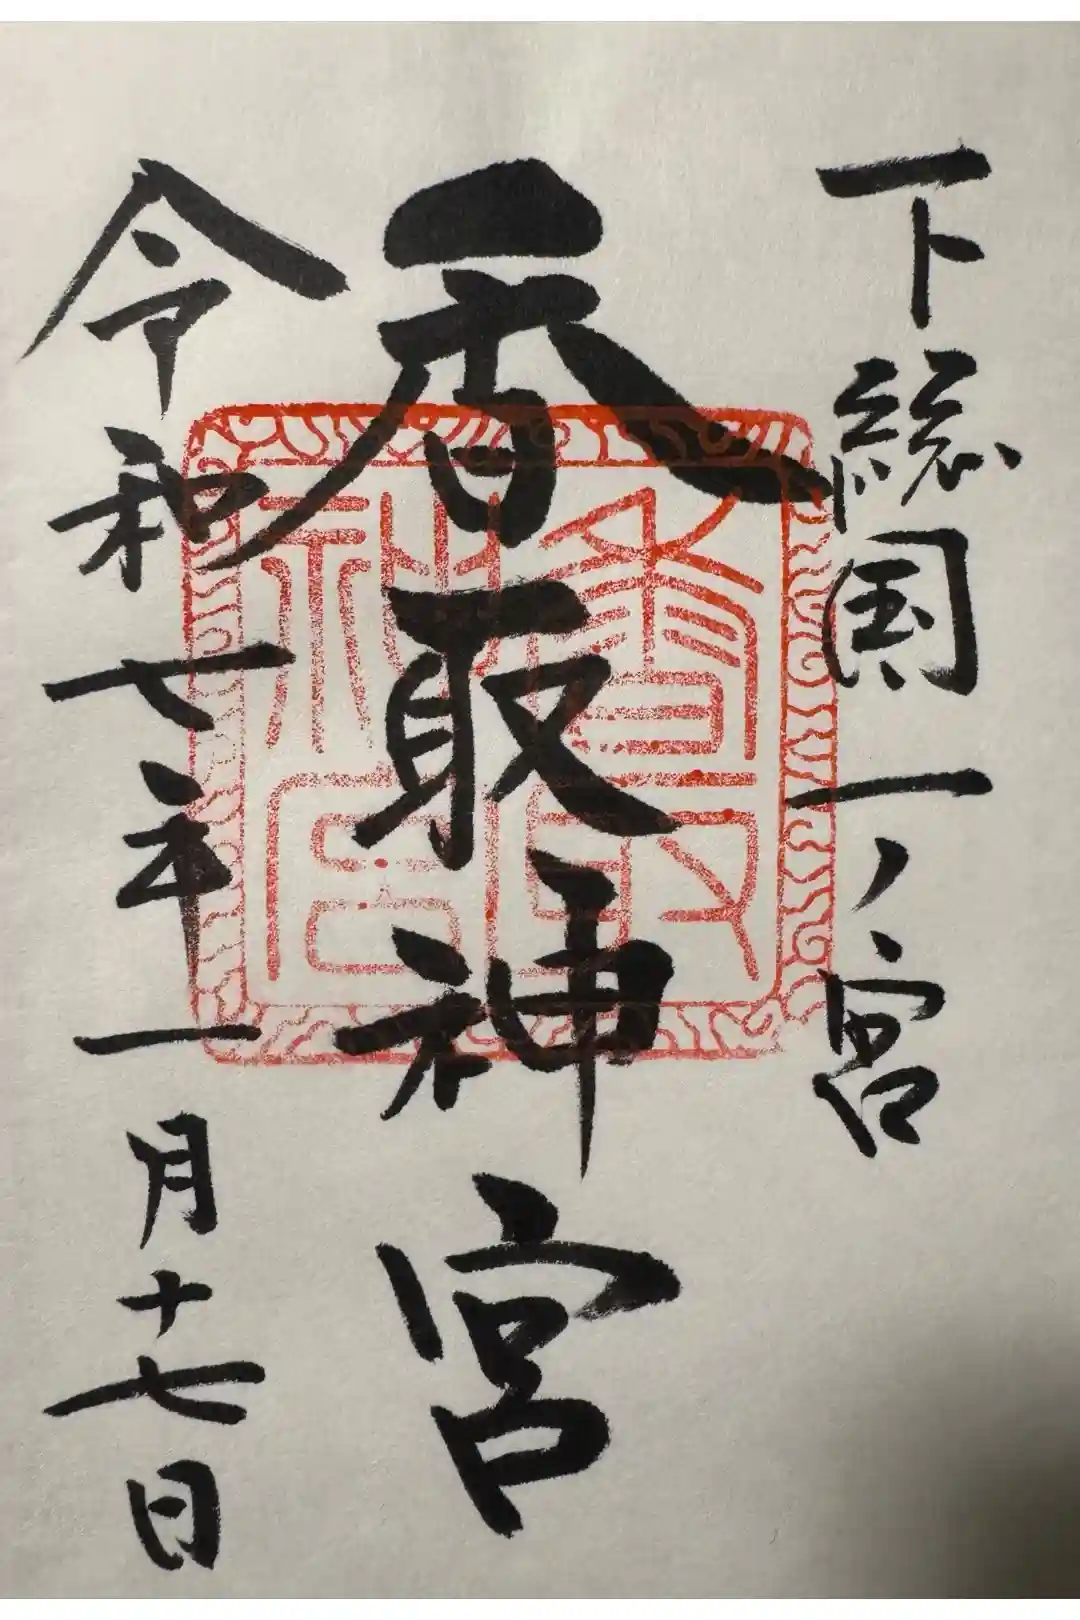 下総国一ノ宮
香取神宮
令和七年一月十七日
香取神宮